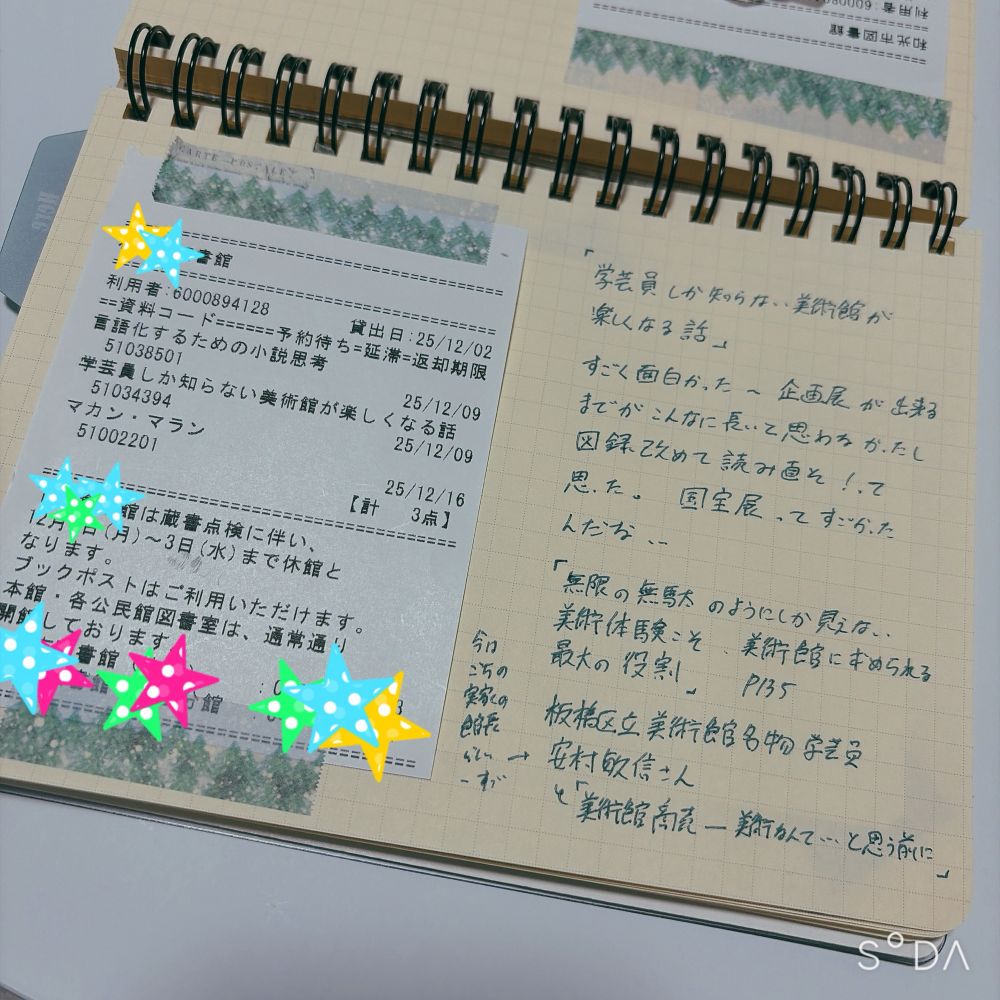 利用者:6000
和光市図書館
CARTE POSTALE
書館
利用者:6000894128
貸出日:25/12/02
==資料コード======予約待ち=延滞=返却期限
言語化するための小説思考
51038501
25/12/09
学芸員しか知らない美術館が楽しくなる話
51034394
25/12/09
マカン・マラン
51002201
25/12/16
【計 3点】
館は蔵書点検に伴い、
12月 日(月)～3日(水)まで休館と
なります。
ブックポストはご利用いただけます。
本館・各公民館図書室は、通常通り
開館しております
書館
分館
「学芸員しか知らない美術館が
楽しくなる話」
すごく面白かった～ 企画展が出来る
までがこんなに長いて思わなかったし
図録改めて読み直そ!って
思った。 国宝展ってすごかった
んだな..
「無限の無駄のようにしか見えない
美術体験こそ、美術館に求められる
最大の役割」 P135
板橋区立美術館名物学芸員
安村敏信さん
と「美術館商売―美術なんて…と思う前に」
今は
こちの
実家の
館長
らしい→
SODA